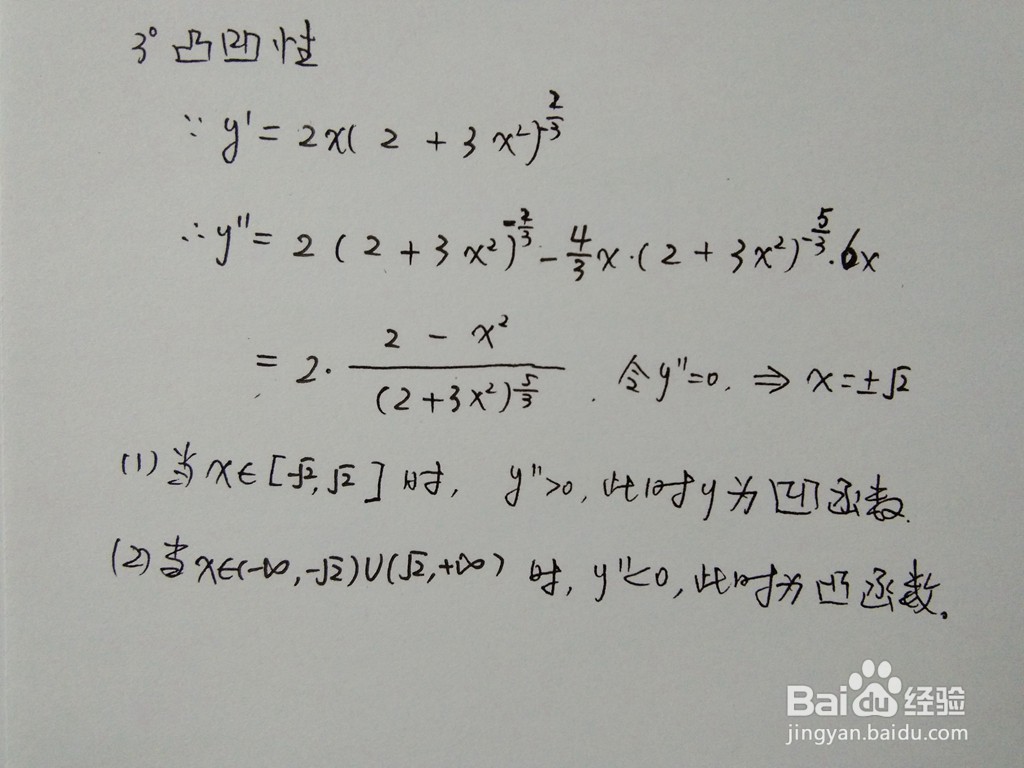 3° 凸凹性
∵ y' = 2x(2 + 3x²)^{-2/3}
∴ y'' = 2(2 + 3x²)^{-2/3} - 4/3 x·(2 + 3x²)^{-5/3}·6x
= 2· (2 - x²)/(2+3x²)^{5/3} . 令y''=0. ⇒ x=±√2
(1) 当x∈[-√2,√2]时, y''>0, 此时y为凹函数.
(2) 当x∈(-∞,-√2)∪(√2,+∞)时, y''<0, 此时为凸函数.
Bai du 经验
jingyan.baidu.com